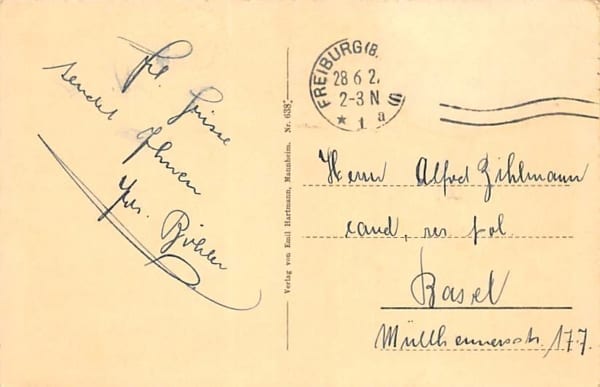 Frl. Grüsse
sendet Ihnen
Böhler
Verlag von Emil Hartmann, Mannheim. Nr. 638
FREIBURG (B.
28 6 2
2-3 N
* 1 a
Herrn Alfred Zihlmann
cand. rer. pol.
Basel
177.